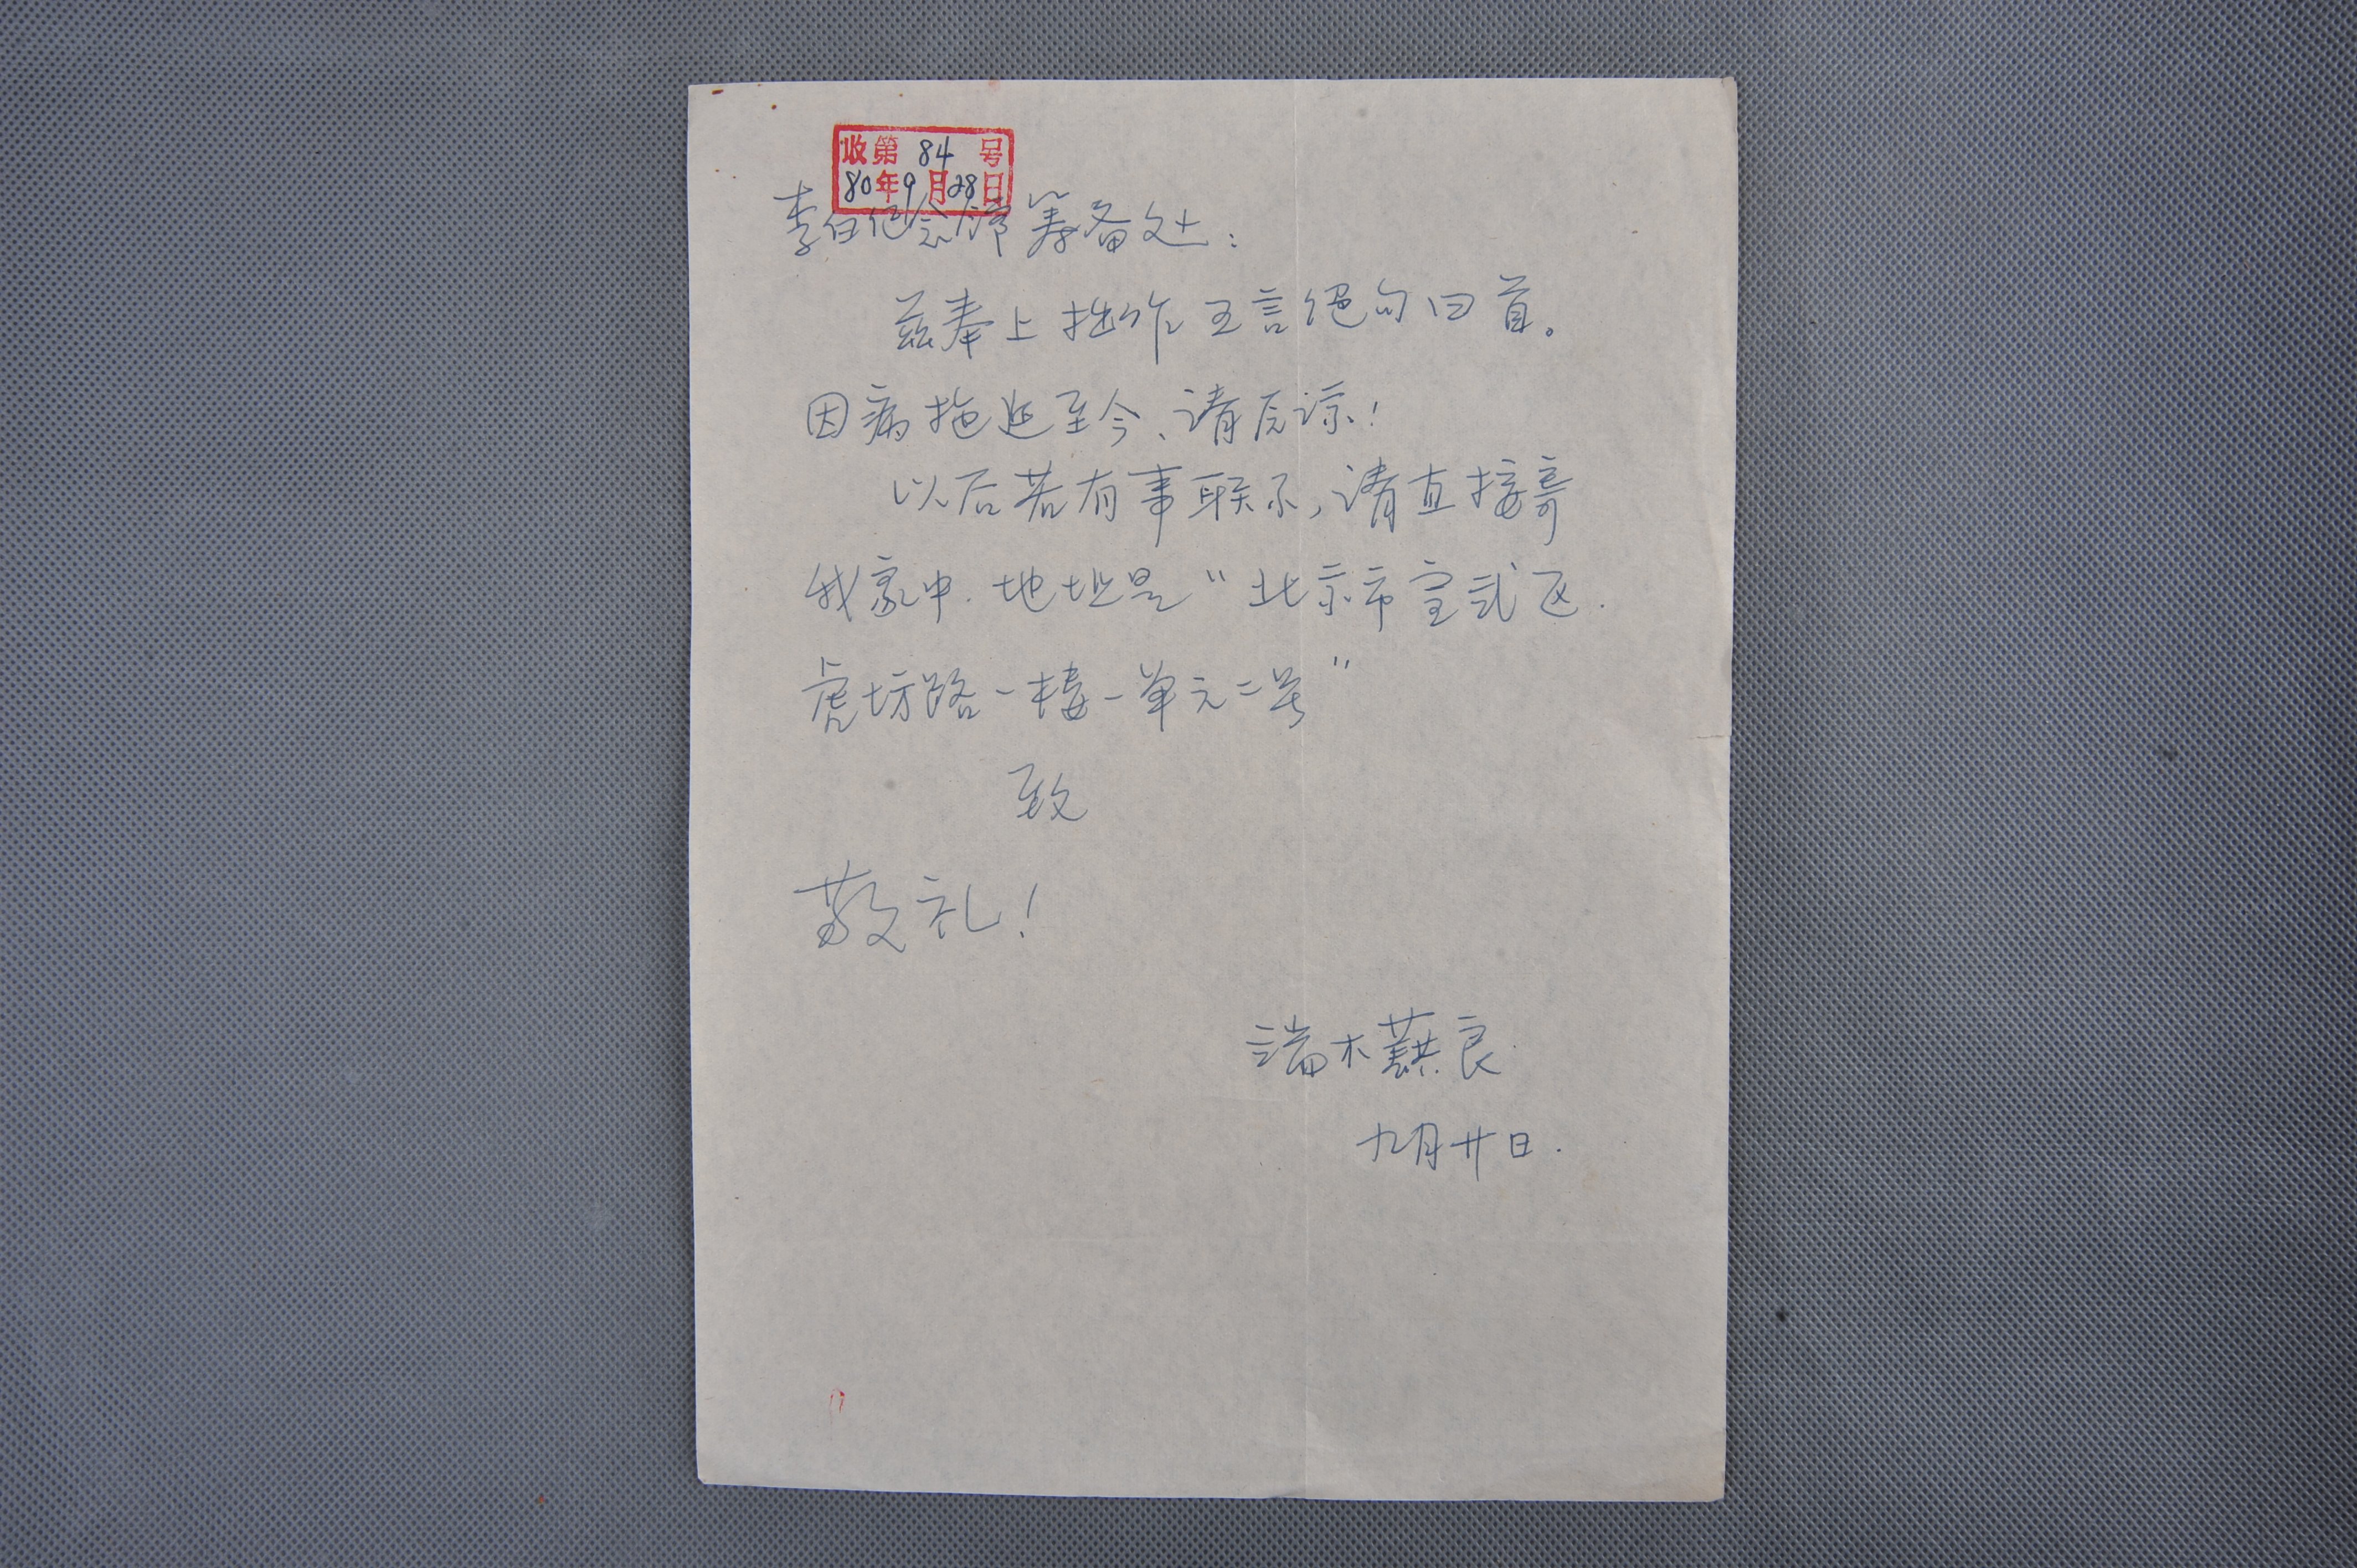 收第 84 号
80年9月28日
李白纪念馆筹备处：
兹奉上拙作五言绝句四首。
因病拖延至今、请原谅！
以后若有事联系，请直接寄
我家中.地址是“北京市宣武区.
虎坊路一楼一单元二号”
致
敬礼！
端木蕻良
九月廿日.